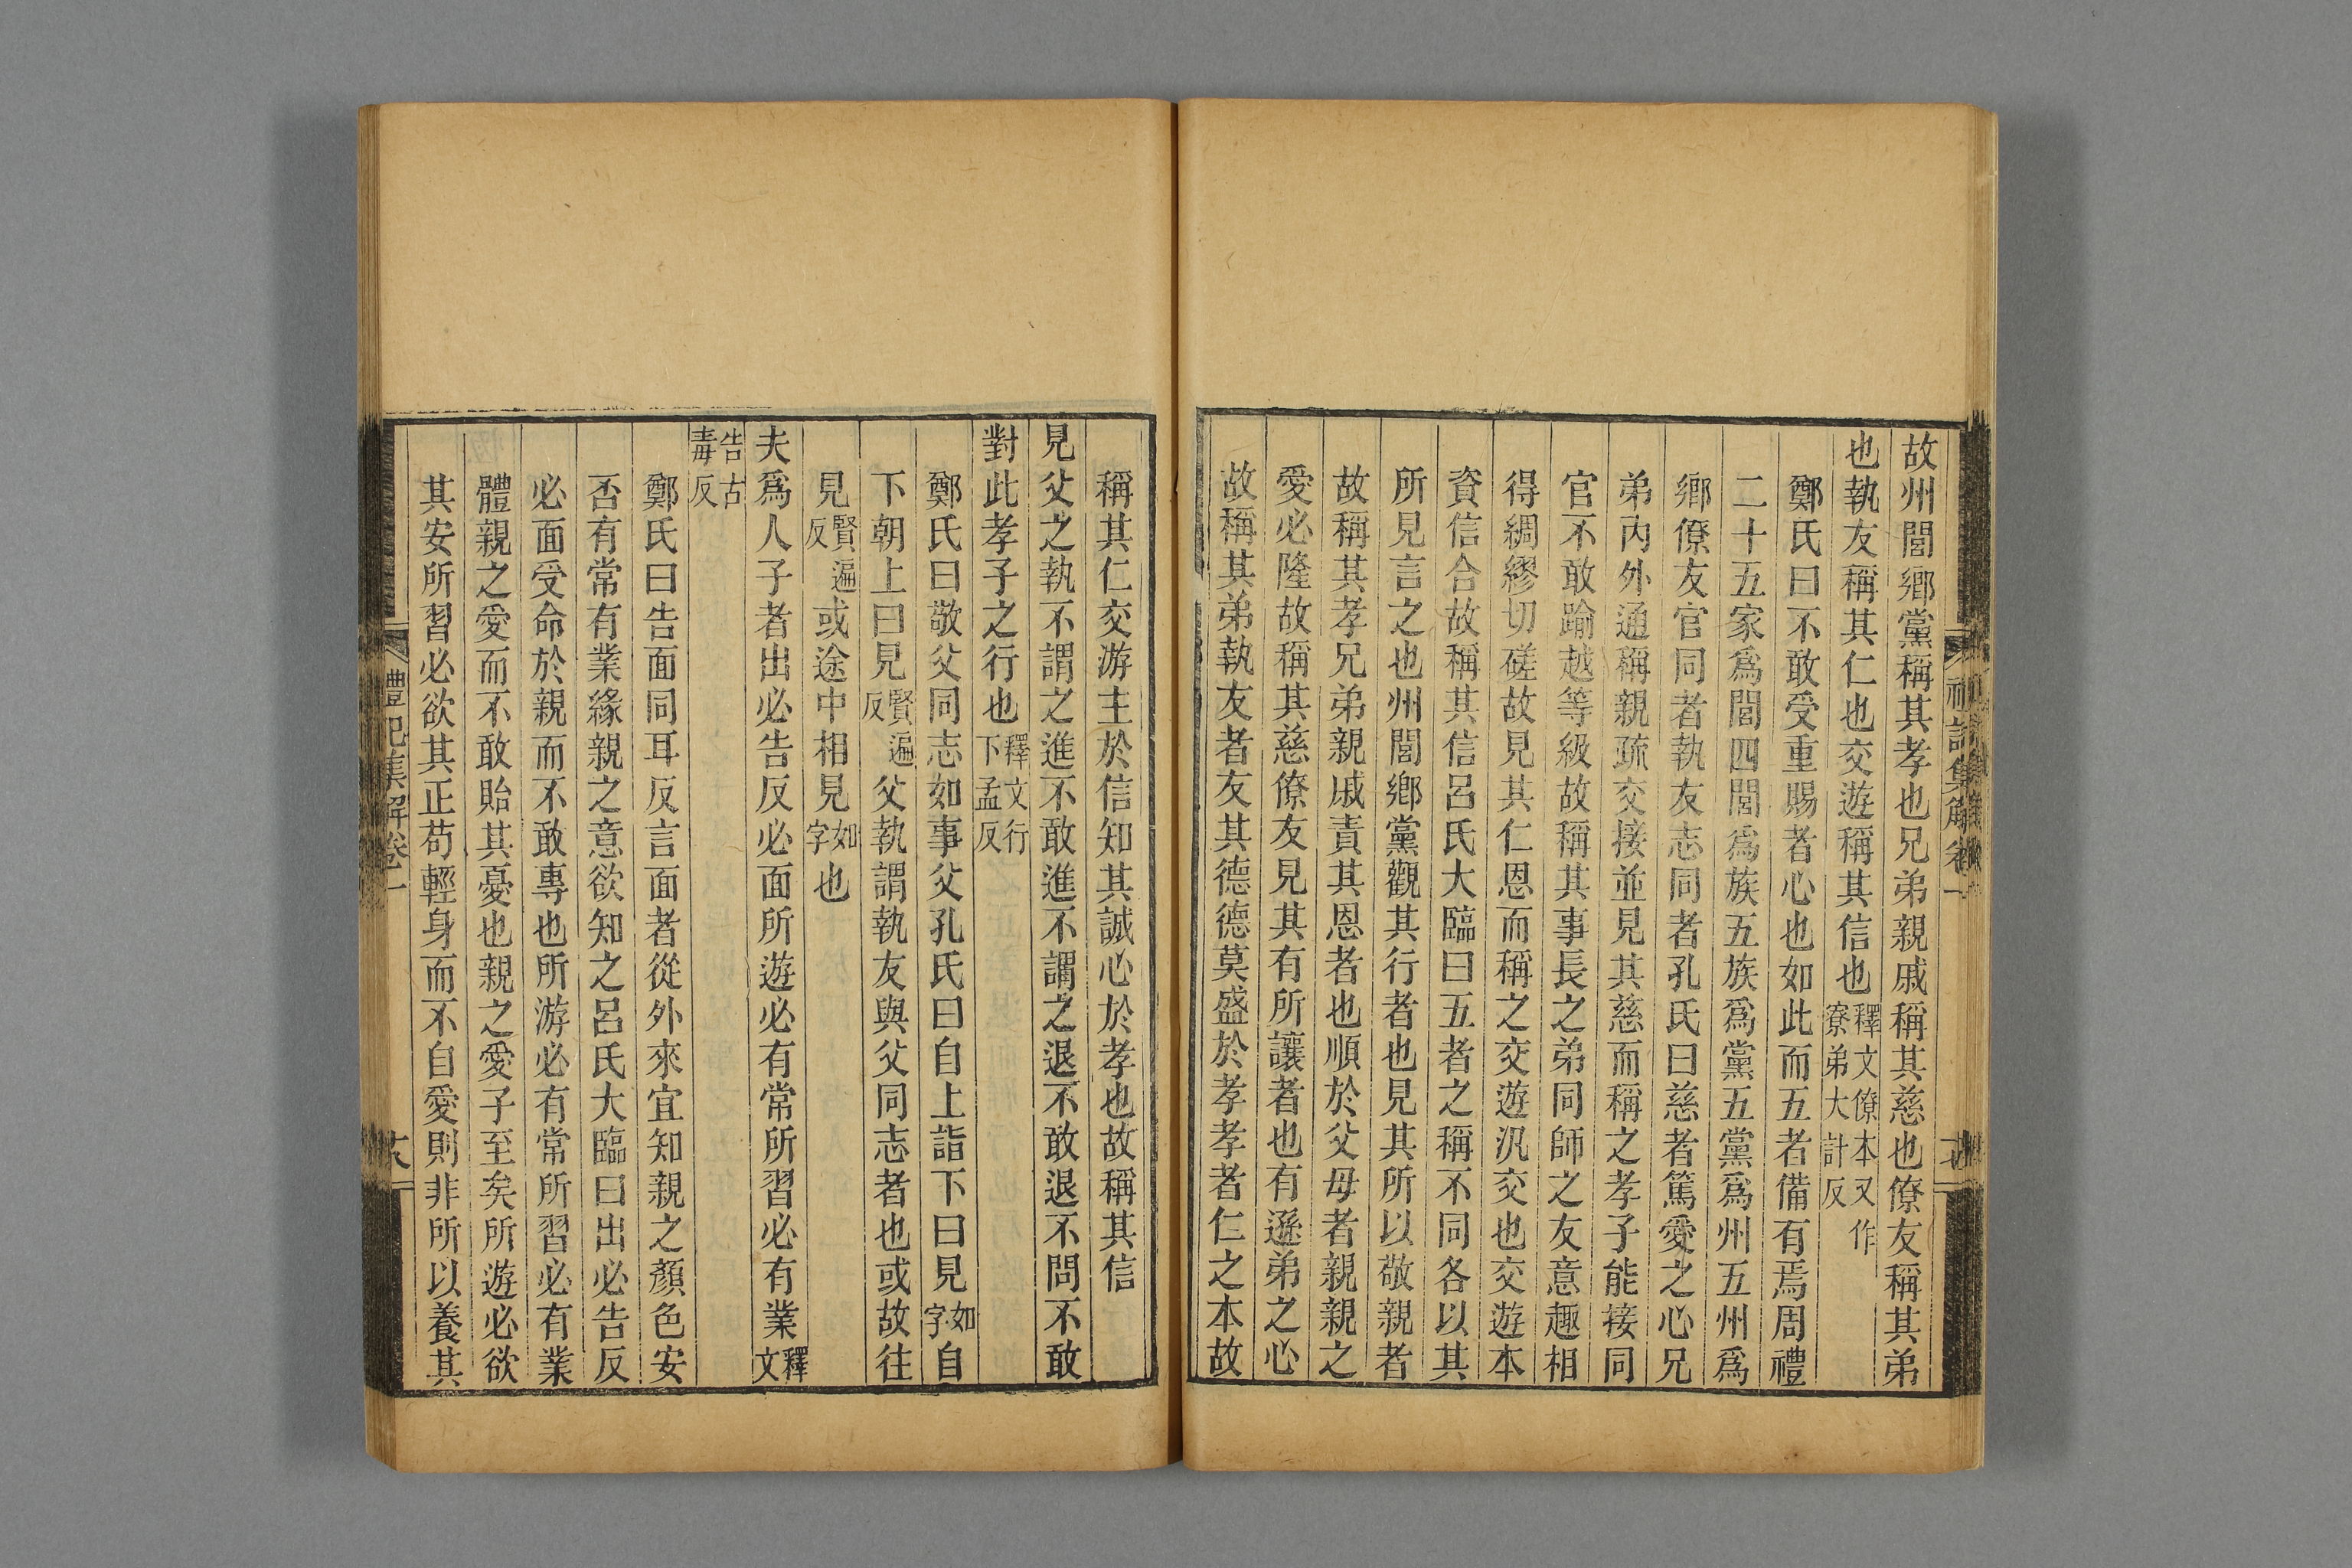 故州閭鄉黨稱其孝也兄弟親戚稱其慈也僚友稱其弟
也執友稱其仁也交遊稱其信也釋文僚本又作寮弟大計反
鄭氏曰不敢受重賜者心也如此而五者備有焉周禮
二十五家爲閭四閭爲族五族爲黨五黨爲州五州爲
鄉僚友官同者執友志同者孔氏曰慈者篤愛之心兄
弟內外通稱親疏交接並見其慈而稱之孝子能接同
官不敢踰越等級故稱其事長之弟同師之友意趣相
得綢繆切磋故見其仁恩而稱之交遊汎交也交遊本
資信合故稱其信呂氏大臨曰五者之稱不同各以其
所見言之也州閭鄉黨觀其行者也見其所以敬親者
故稱其孝兄弟親戚責其恩者也順於父母者親親之
愛必隆故稱其慈僚友見其有所讓者也有遜弟之心
故稱其弟執友者友其德德莫盛於孝孝者仁之本故
稱其仁交游主於信知其誠心於孝也故稱其信
見父之執不謂之進不敢進不謂之退不敢退不問不敢
對此孝子之行也釋文行下孟反
鄭氏曰敬父同志如事父孔氏曰自上詣下曰見如字自
下朝上曰見賢遍反父執謂執友與父同志者也或故往
見賢遍反或途中相見如字也
夫爲人子者出必告反必面所遊必有常所習必有業釋文
告古毒反
鄭氏曰告面同耳反言面者從外來宜知親之顏色安
否有常有業緣親之意欲知之呂氏大臨曰出必告反
必面受命於親而不敢專也所游必有常所習必有業
體親之愛而不敢貽其憂也親之愛子至矣所遊必欲
其安所習必欲其正苟輕身而不自愛則非所以養其
禮記集解卷一